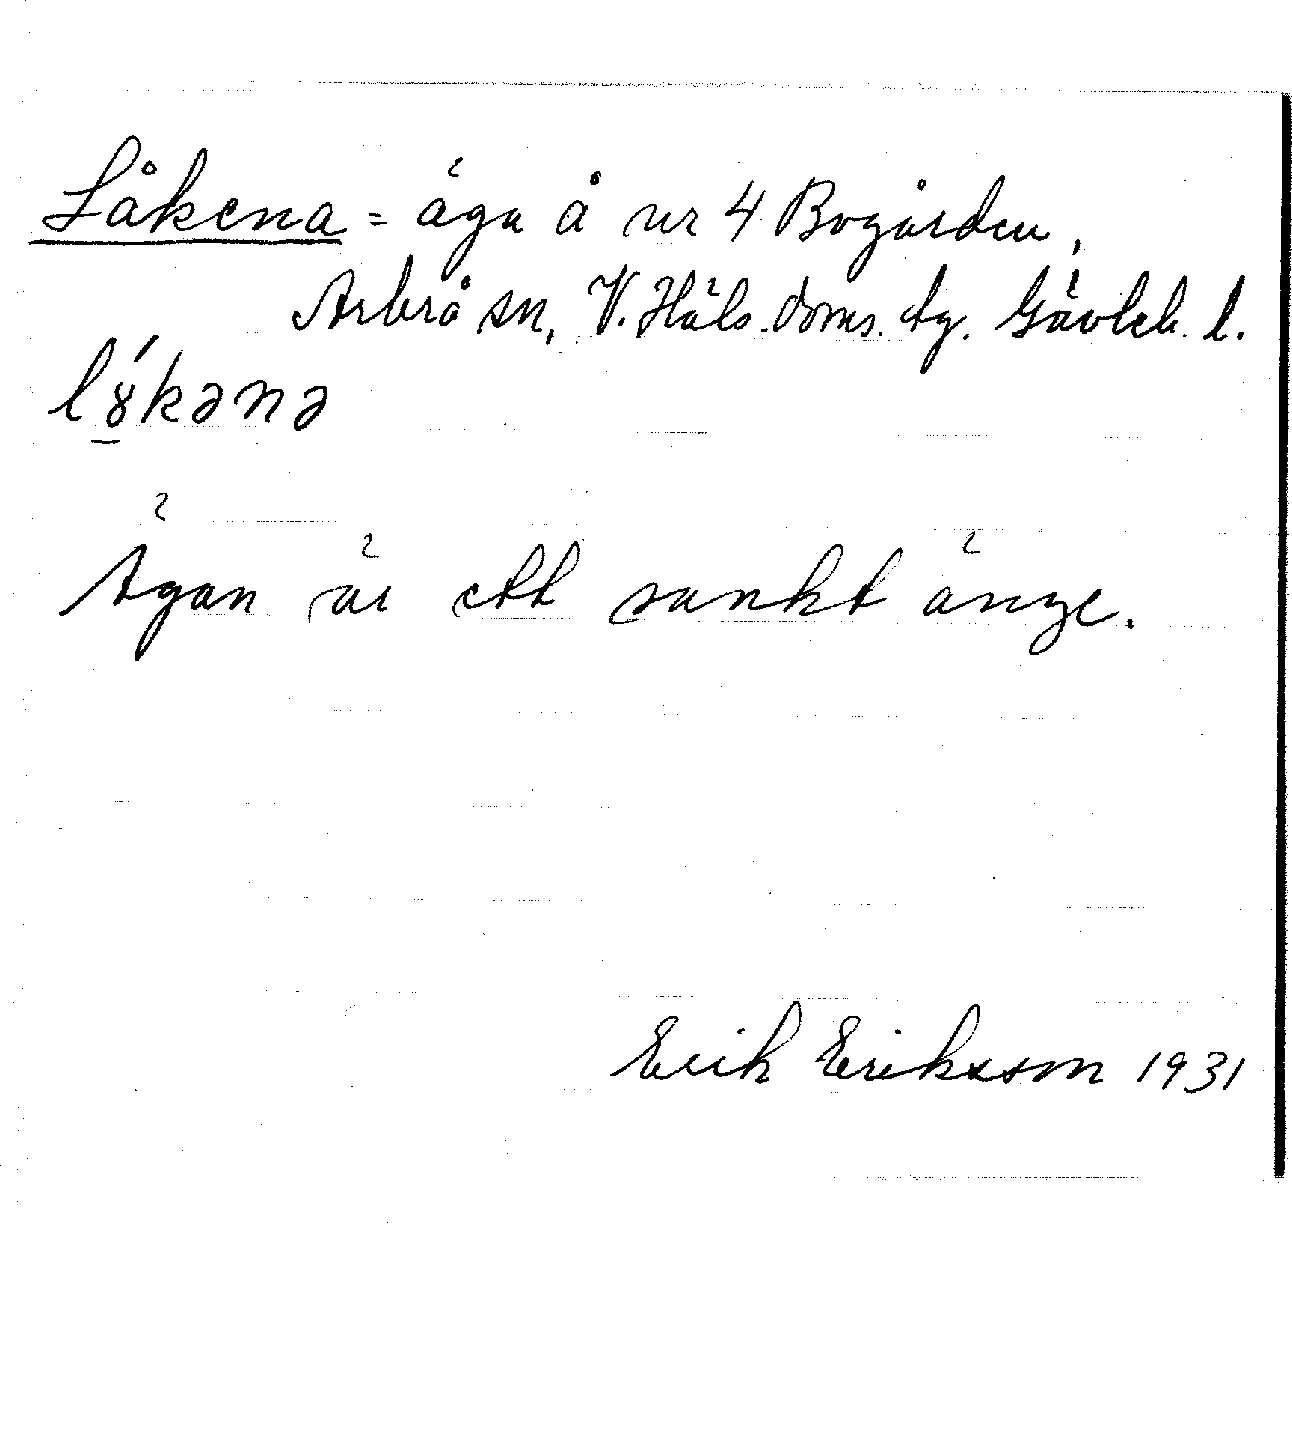 Låkena = äga å nr 4 Bogården,
Arbrå sn, V. Häls. doms. tg. Gävleb. l.
lɤ́kənə
Ägan är ett sankt änge.
Erik Eriksson 1931